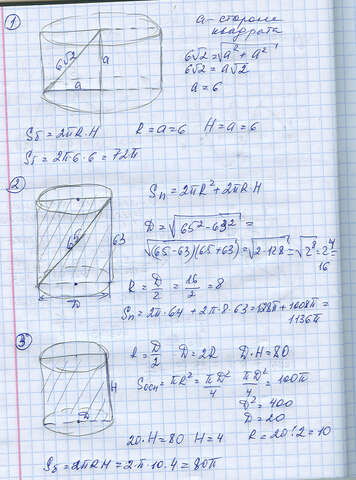 1
a - сторона
квадрата
6√2
a
a
6√2 = √a² + a²
6√2 = a√2
a = 6
Sб = 2πR·H R = a = 6 H = a = 6
Sб = 2π6·6 = 72π
2
Sп = 2πR² + 2πRH
65
63
D
D = √65² - 63² =
√(65-63)(65+63) = √2·128 = √2⁸ = 2⁴
16
R = D/2 = 16/2 = 8
Sп = 2π·64 + 2π·8·63 = 128π + 1008π =
1136π
3
H
D
R = D/2 D = 2R D·H = 80
Sосн = πR² = πD²/4 πD²/4 = 100π
D² = 400
D = 20
20·H = 80 H = 4 R = 20:2 = 10
Sб = 2πRH = 2·π·10·4 = 80π